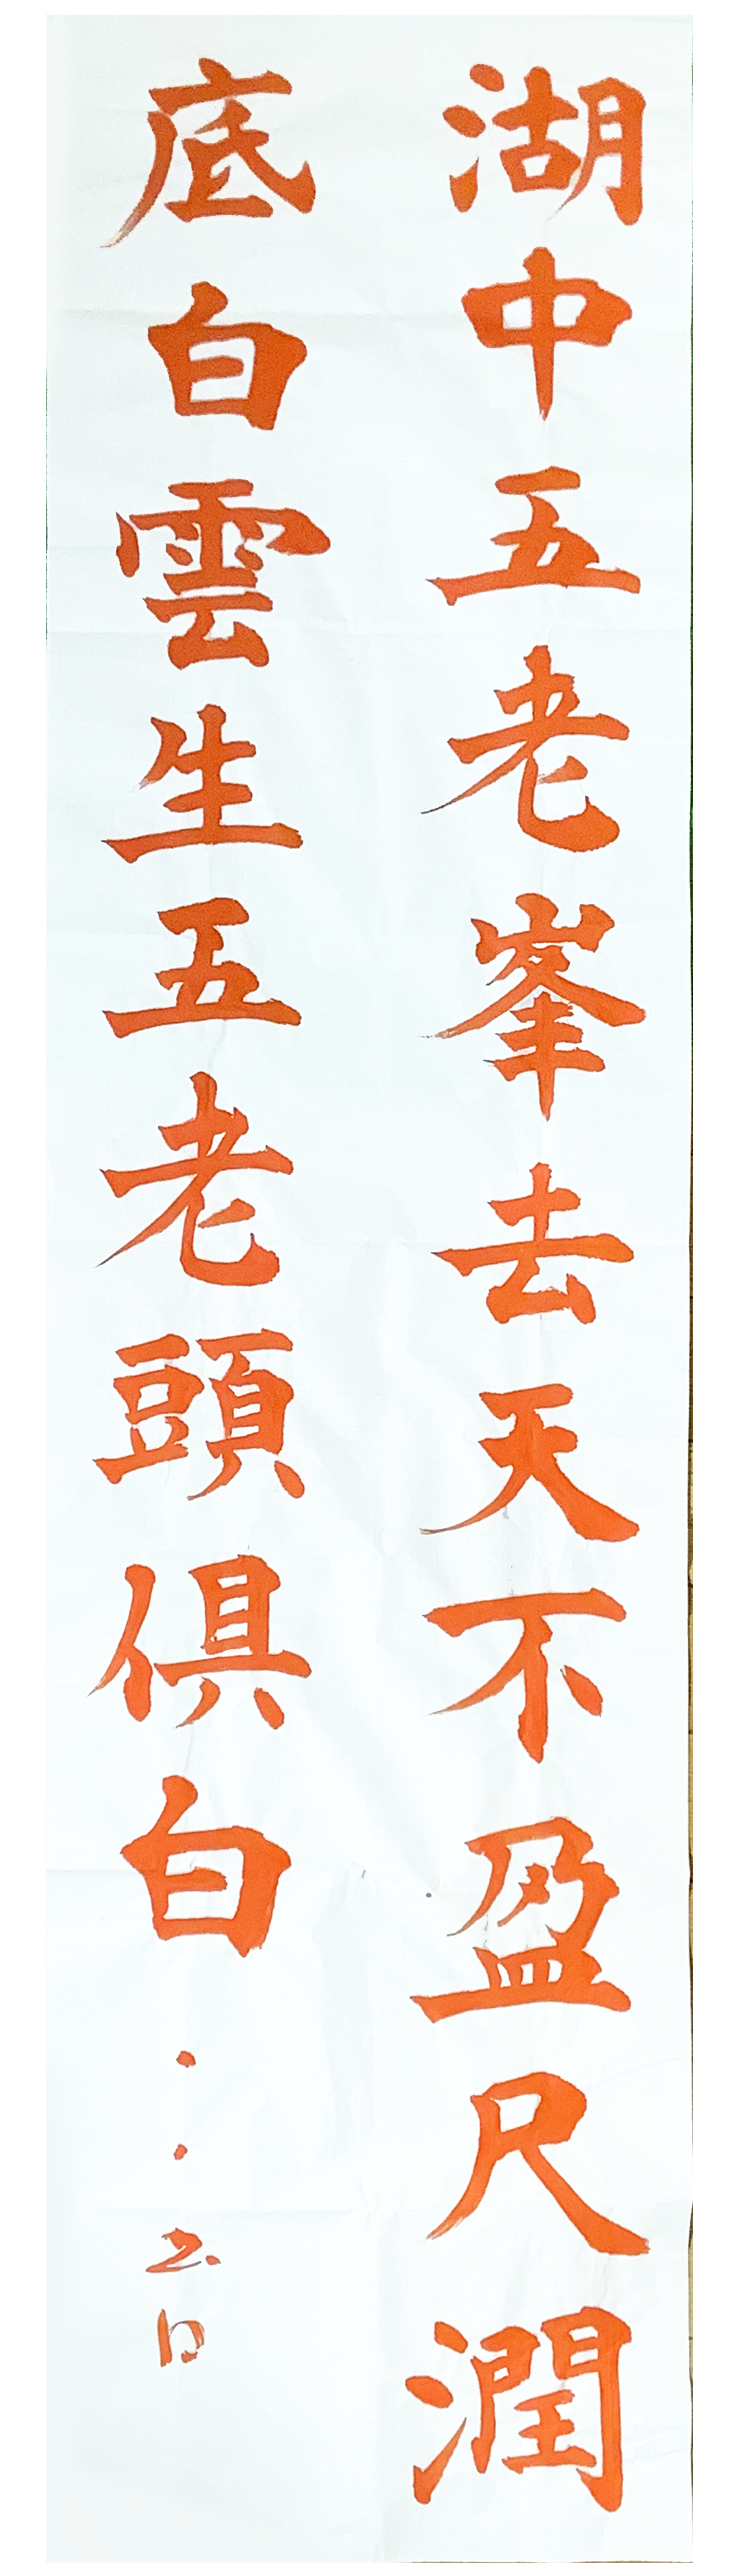 湖中五老峯去天不盈尺潤
底白雲生五老頭俱白